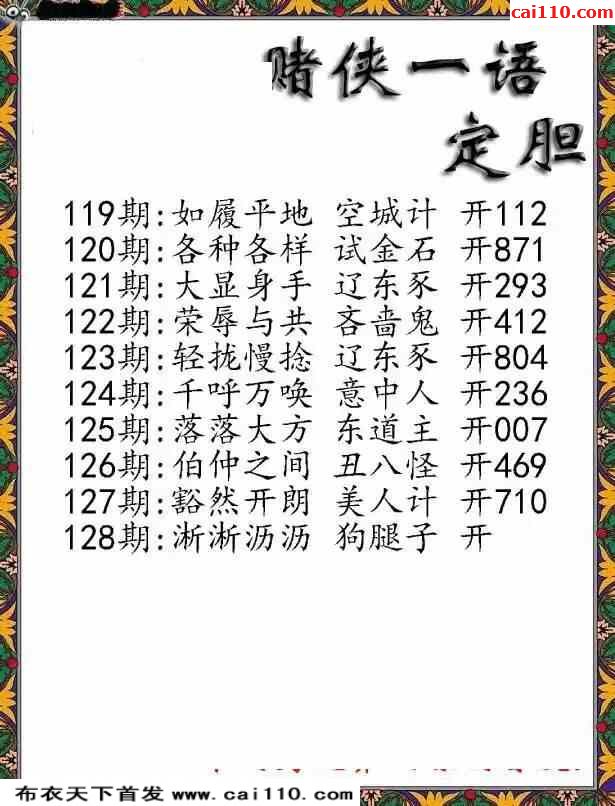 cai110.com
赌侠一语
定胆
119期:如履平地 空城计 开112
120期:各种各样 试金石 开871
121期:大显身手 辽东豕 开293
122期:荣辱与共 吝啬鬼 开412
123期:轻拢慢捻 辽东豕 开804
124期:千呼万唤 意中人 开236
125期:落落大方 东道主 开007
126期:伯仲之间 丑八怪 开469
127期:豁然开朗 美人计 开710
128期:淅淅沥沥 狗腿子 开
布衣天下首发 www.cai110.com